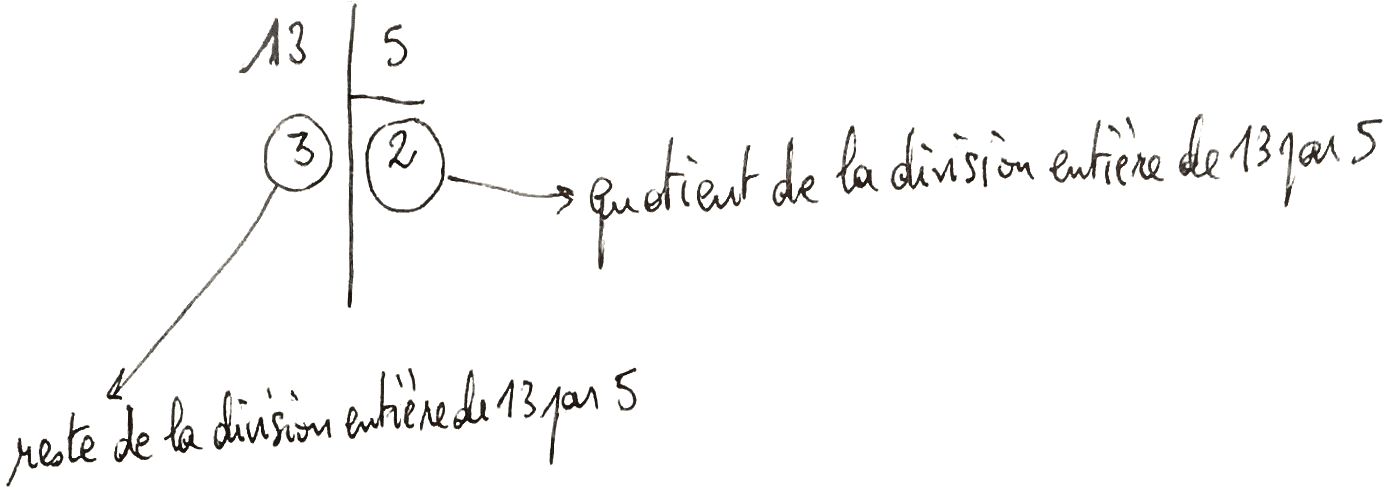 13 5
3 2
quotient de la division entière de 13 par 5
reste de la division entière de 13 par 5